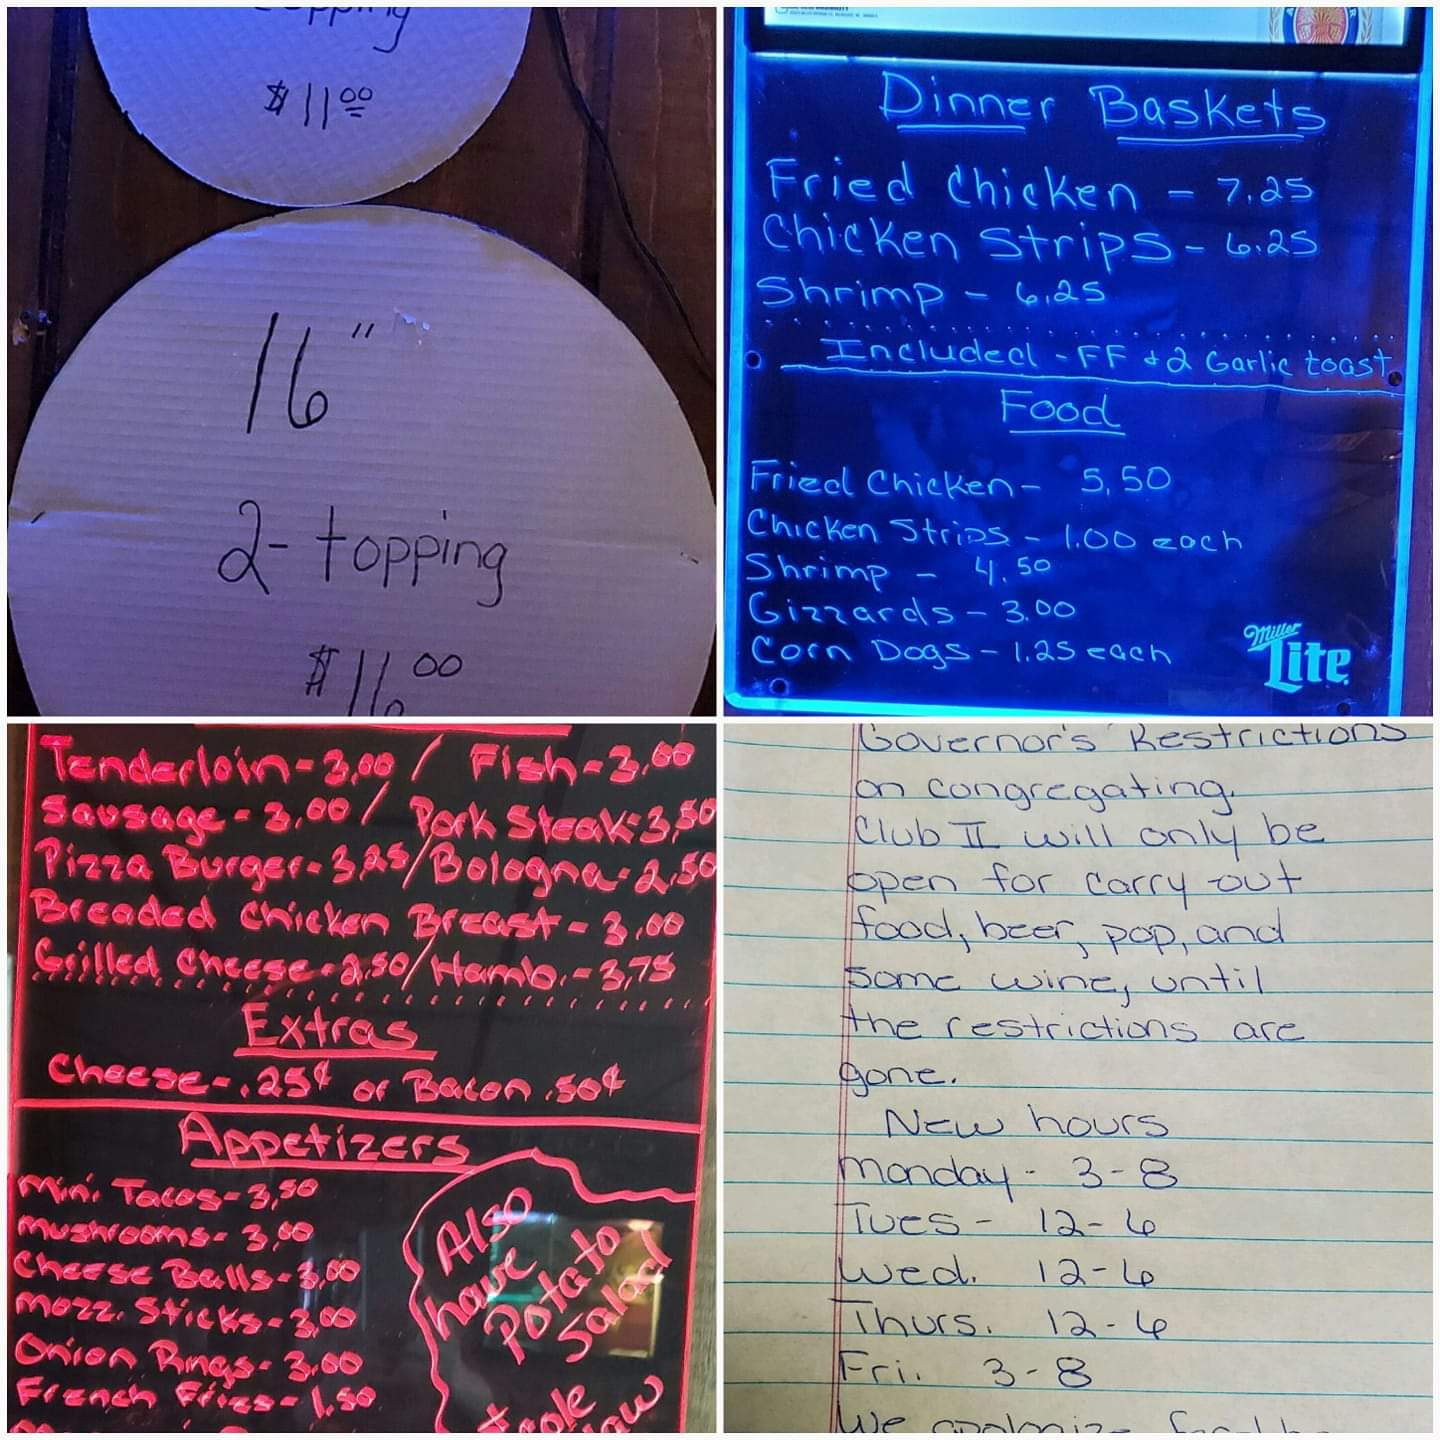 topping
$11.00
16"
2- topping
$16.00
Dinner Baskets
Fried Chicken - 7.25
Chicken Strips - 6.25
Shrimp - 6.25
Included - FF + 2 Garlic toast
Food
Fried Chicken - 5.50
Chicken Strips - 1.00 each
Shrimp - 4.50
Gizzards - 3.00
Corn Dogs - 1.25 each
Miller
Lite
Tenderloin - 3.00 / Fish - 3.00
Sausage - 3.00 / Pork Steak - 3.50
Pizza Burger - 3.25 / Bologna - 2.50
Breaded Chicken Breast - 3.00
Grilled Cheese - 2.50 / Hamb. - 3.75
Extras
Cheese - .25¢ or Bacon .50¢
Appetizers
Mini Tacos - 3.50
Mushrooms - 3.00
Cheese Balls - 3.00
Mozz. Sticks - 3.00
Onion Rings - 3.00
French Fries - 1.50
Also
have
Potato
Salad
Governor's Restrictions
on congregating.
Club II will only be
open for carry-out
food, beer, pop, and
some wine, until
the restrictions are
gone.
New hours
Monday - 3-8
Tues - 12-6
Wed. 12-6
Thurs. 12-6
Fri. 3-8
We apologize for